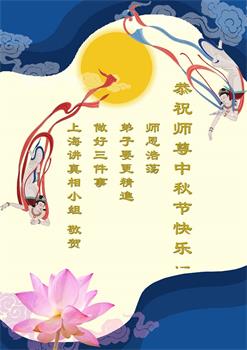 恭祝师尊中秋节快乐
师恩浩荡
弟子要更精進
做好三件事
上海讲真相小组 敬贺